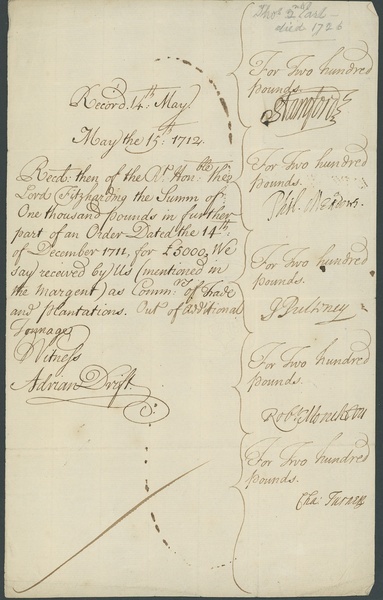 Thos 2nd Earl –
died 1726
Record. 14th: May
May the 15th: 1712.
Recd: then of the Rt. Honble the
Lord Fitzharding the Summ of
One thousand pounds in further
part of an Order Dated the 14th
of December 1711, for £5000, We
say received by Us (mentioned in
the Margent) as Commrs of Trade
and Plantations. Out of additional
Tonnage
Witness
Adrian Drift
For Two hundred
pounds.
Stamford
For Two hundred
pounds.
Phil: Meadows.
For Two hundred
pounds.
J Pulteney
For Two hundred
pounds.
Robt Monckton
For Two hundred
pounds.
Cha: Turner